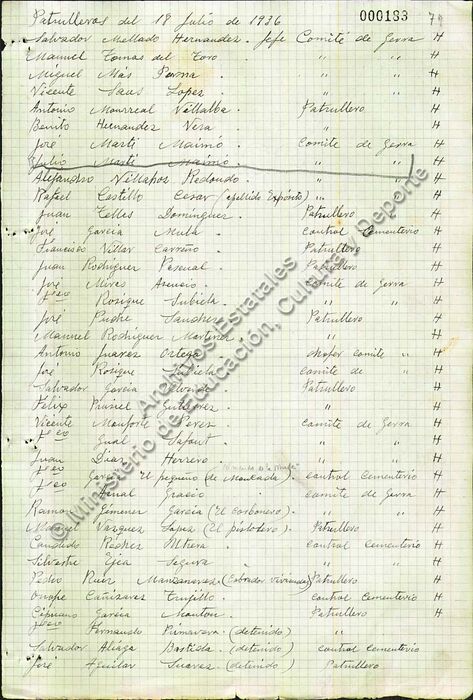 000183 79
Patrulleros del 18 Julio de 1936
Salvador Mellado Hernandez. Jefe Comité de Gerra H
Manuel Tomas del Toro. " " H
Miguel Mas Perma. " " H
Vicente Saus Lopez. " " H
Antonio Monrreal Villalba. Patrullero H
Benito Hernandez Vera. " H
José Marti Maimó. Comite de Gerra H
Julio Marti Maimó. " " H
Alejandro Villapos Redondo. " " H
Rafael Castillo Cesar (apellido Expósito) " H
Juan Telles Dominguez. Patrullero H
José Garcia Mula. control Cementerio H
Francisco Villar Carreño. Patrullero H
Juan Rodriguez Pascual. Patrullero H
José Miras Asencio. comite de Gerra H
Fco Rosique Subiela. " " H
José Puche Sanchez. Patrullero H
Manuel Rodriguez Martinez. " H
Antonio Juarez Ortega. chofer comite " H
José Rosique Subiela. comite de " H
Salvador Garcia Patrullero H
Felix Gutierrez. " H
Vicente Monforte Perez. comite de Gerra H
Fco Gual Safont. " " H
Juan Diaz Herrero. " " H
Fco Garcia El pequeño (de Moncada). control cementerio H
Fco Gracia. comite de Gerra H
Ramon Gimener Garcia (El carbonero). " " H
Manuel Vazquez Lopez (El pistolero). Patrullero H
Candido control cementerio H
Silvestre Egea Segura. " " H
Pedro Ruiz Manzanares (Cobrador vivienda) Patrullero H
Onofre Cañizares Trujillo. control Cementerio H
Cipriano Garcia Monton. Patrullero H
Fco Fernando Primavera. (detenido) " H
Salvador Aliaga Bastida. (detenido) control cementerio
José Aguilar Suarez (detenido). Patrullero
© Ministerio de Educación, Cultura y Deporte
Archivos Estatales